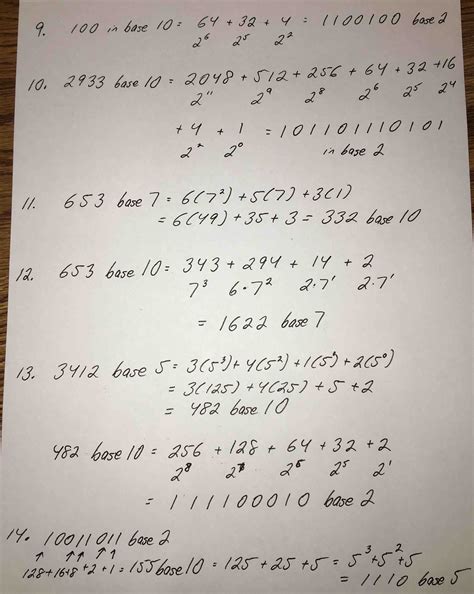 9. 100 in base 10 = 64 + 32 + 4 = 1100100 base 2
2^6 2^5 2^2
10. 2933 base 10 = 2048 + 512 + 256 + 64 + 32 + 16
2^11 2^9 2^8 2^6 2^5 2^4
+ 4 + 1 = 101101110101
2^2 2^0 in base 2
11. 653 base 7 = 6(7^2) + 5(7) + 3(1)
= 6(49) + 35 + 3 = 332 base 10
12. 653 base 10 = 343 + 294 + 14 + 2
7^3 6·7^2 2·7^1 2·7^1
= 1622 base 7
13. 3412 base 5 = 3(5^3) + 4(5^2) + 1(5^1) + 2(5^0)
= 3(125) + 4(25) + 5 + 2
= 482 base 10
482 base 10 = 256 + 128 + 64 + 32 + 2
2^8 2^7 2^6 2^5 2^1
= 111100010 base 2
14. 10011011 base 2
128 + 16 + 8 + 2 + 1 = 155 base 10 = 125 + 25 + 5 = 5^3 + 5^2 + 5
= 1110 base 5